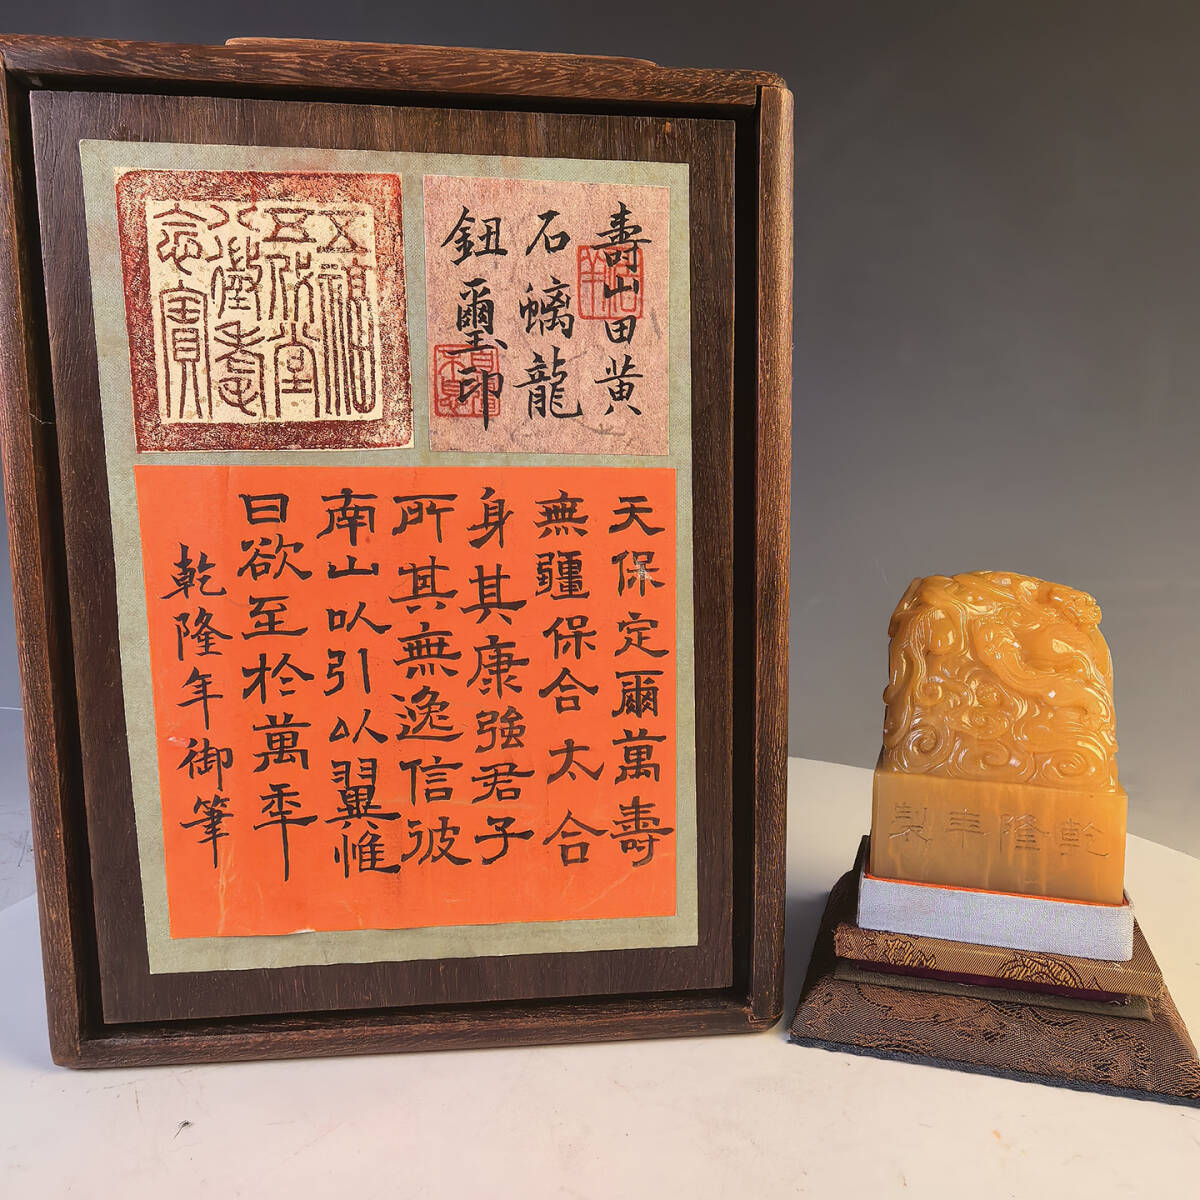 五福
五代堂
八徵耄
念寶
壽山田黃
石螭龍
鈕璽印
天保定爾萬壽
無疆保合太合
身其康強君子
所其無逸信彼
南山以引以翼惟
日欲至於萬年
乾隆年御筆
乾隆年製